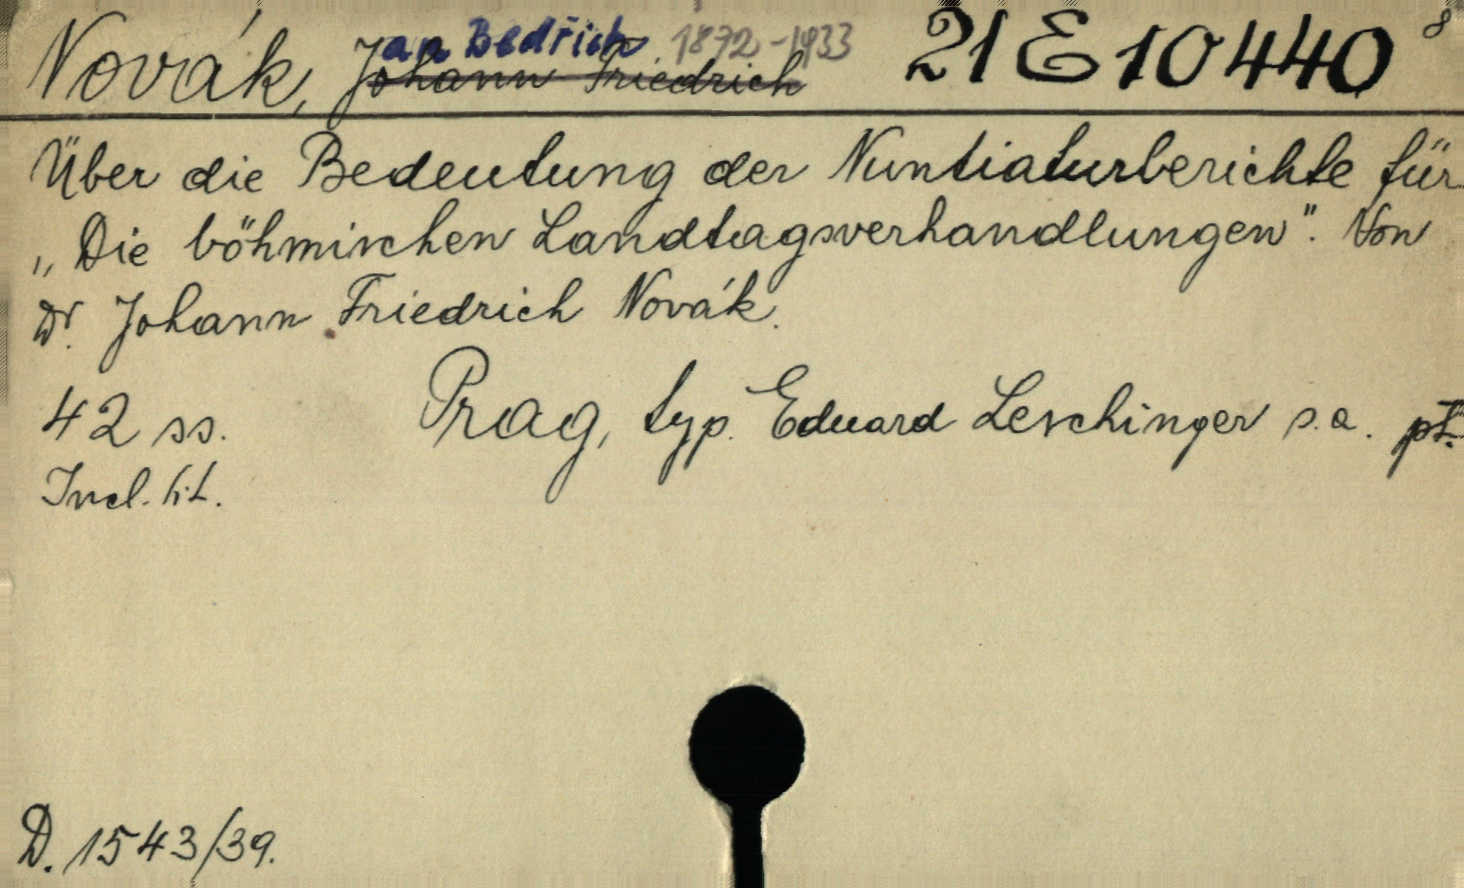 Novák, Jan Bedřich 1872-1933 21 E 10440 8
Johann Friedrich
Über die Bedeutung der Nuntiaturberichte für
„Die böhmischen Landtagsverhandlungen". Von
Dr. Johann Friedrich Novák.
42 ss. Prag, typ. Eduard Leschinger s.a. pt.
Incl. tit.
D. 1543/39.